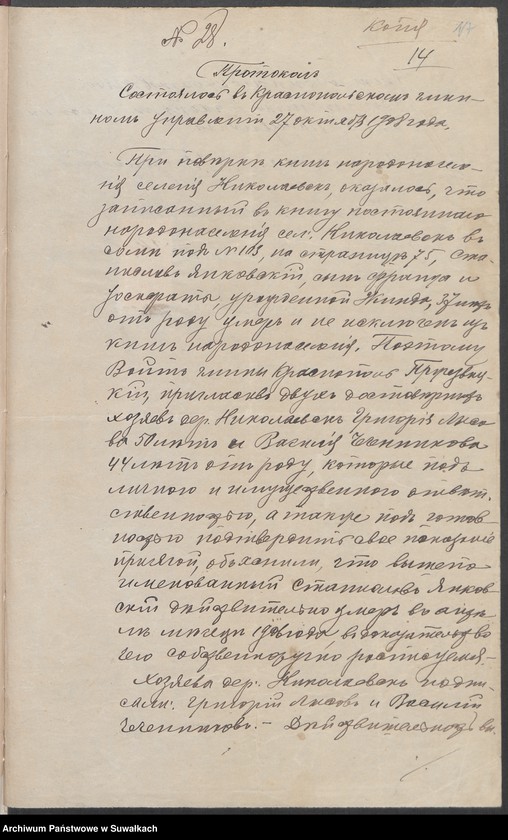 № 28.
Копія
147
14
Протоколъ
Состоялось въ Краснопольскомъ гмин-
номъ Управленіи 27 октября 1908 года.
При повѣркѣ книгъ народонаселе-
нія селенія Николаевокъ, оказалось, что
записанный въ книгу постояннаго
народонаселенія сел. Николаевокъ въ
подъ № 103, на страницѣ 75, Ста-
ниславъ Янковскій, сынъ Франца и
урожденной 37 лѣтъ
отъ роду умеръ и не исключенъ изъ
книгъ народонаселенія. Поэтому
Войтъ гмины Краснополь
кій, пригласивъ двухъ достовѣрныхъ
хозяевъ дер. Николаевокъ Григорія
ва 50 лѣтъ и Василія
44 лѣтъ отъ роду, которые подъ
личного и имущественного отвѣт-
ственностью, а также подъ готов-
ностью подтвердить свое показаніе
присягой, объявили, что выше по-
именованный Станиславъ Янков-
скій дѣйствительно умеръ въ апрѣ-
лѣ мѣсяцѣ года, въ доказательство
чего собственноручно росписуемся. —
Хозяева дер. Николаевокъ подпи-
сали: Григорій и Василій
— Дѣйствительность вы-
Archiwum Państwowe w Suwałkach